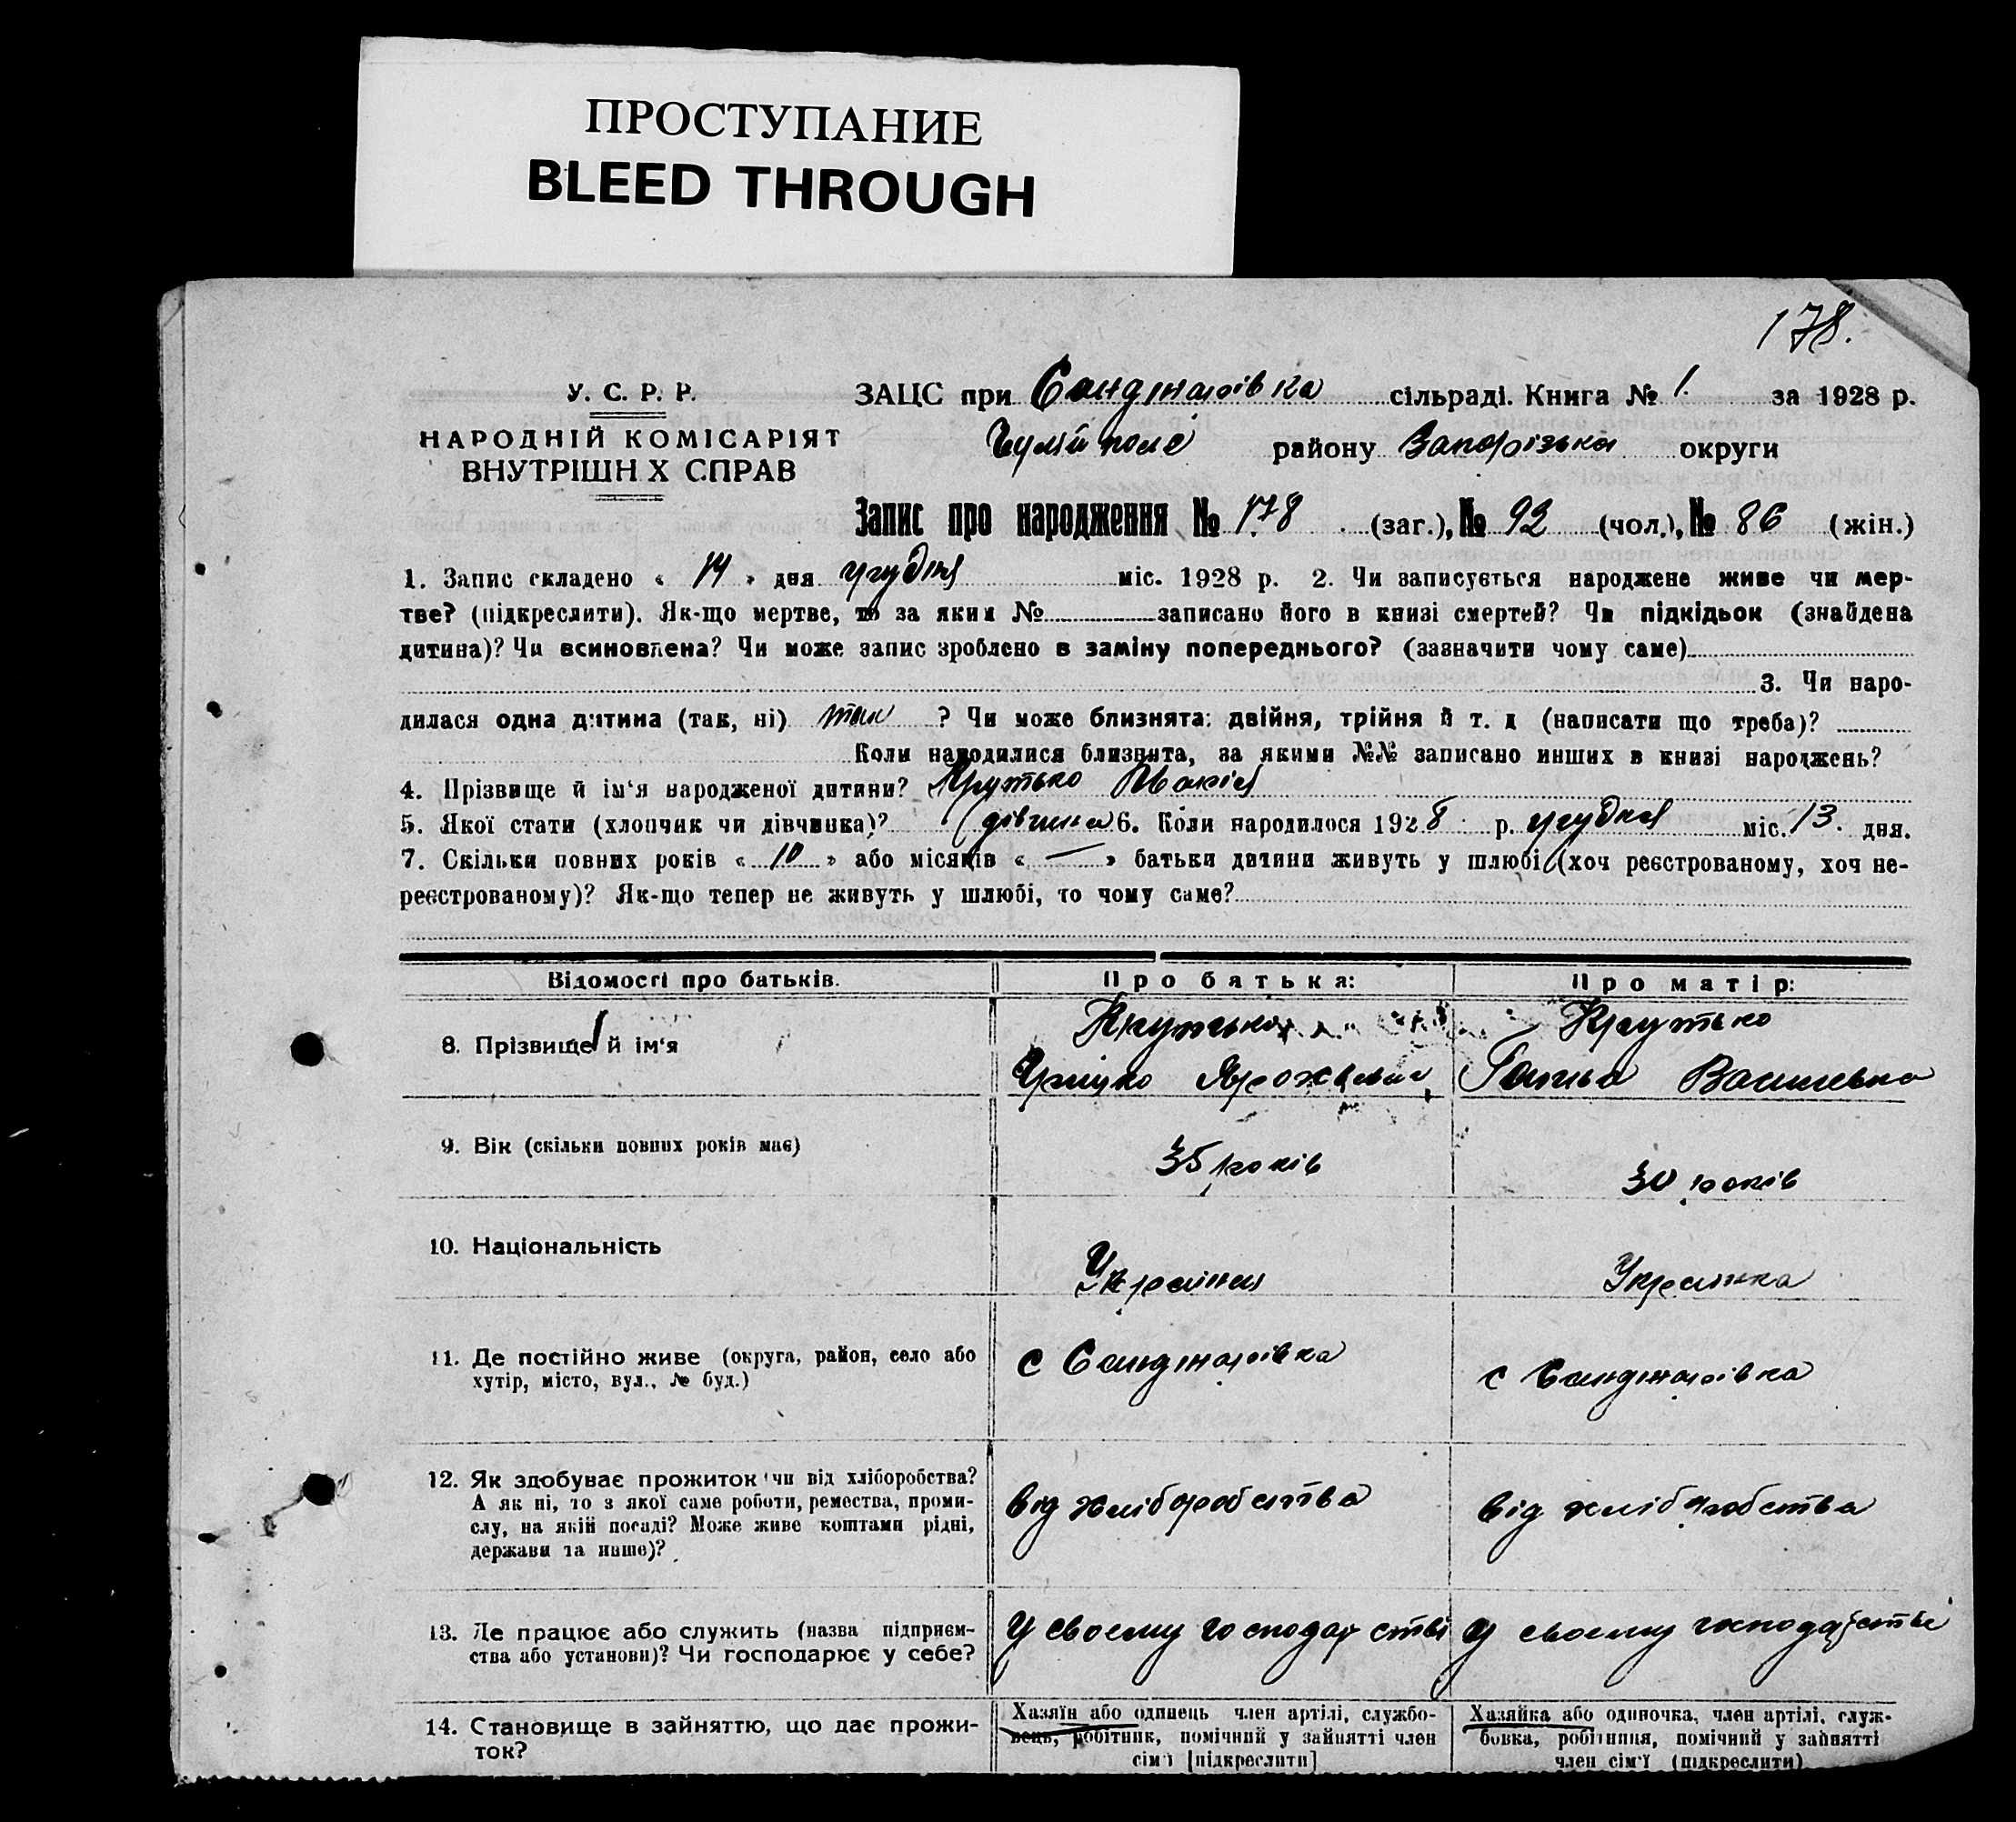 ПРОСТУПАНИЕ
BLEED THROUGH
178.
У. С. Р. Р.
НАРОДНІЙ КОМІСАРІЯТ
ВНУТРІШН Х СПРАВ
ЗАЦС при Санджарівка сільраді. Книга № 1. за 1928 р.
Гуляй поле району Запорізька округи
Запис про народження № 178 (заг.), № 92 (чол.), № 86 (жін.)
1. Запис складено « 14 » дня грудня міс. 1928 р. 2. Чи записується народжене живе чи мер-
тве? (підкреслити). Як-що мертве, то за яким № записано його в книзі смертей? Чи підкідьок (знайдена
дитина)? Чи всиновлена? Чи може запис зроблено в заміну попереднього? (зазначити чому саме)
3. Чи наро-
дилася одна дитина (так, ні) так ? Чи може близнята: двійня, трійня й т. д (написати що треба)?
Коли народилися близнята, за якими №№ записано инших в книзі народжень?
4. Прізвище й ім'я народженої дитини? Крутько Марія
5. Якої стати (хлопчик чи дівчинка)? дівчина 6. Коли народилося 1928 р. грудня міс. 13. дня.
7. Скільки повних років « 10 » або місяців « — » батьки дитини живуть у шлюбі (хоч реєстрованому, хоч не-
реєстрованому)? Як-що тепер не живуть у шлюбі, то чому саме?
Відомості про батьків. Про батька: Про матір:
8. Прізвище й ім'я
Крутько
Грицко
Крутько
Ганна Василевна
9. Вік (скільки повних років має) 35 років 30 років
10. Національність Українец Українка
11. Де постійно живе (округа, район, село або
хутір, місто, вул., № буд.)
с Санджарівка
с Санджарівка
12. Як здобуває прожиток чи від хліборобства?
А як ні, то з якої саме роботи, ремества, проми-
слу, на якій посаді? Може живе коштами рідні,
держави та инше)?
від хліборобства
від хліборобства
13. Де працює або служить (назва підприєм-
ства або установи)? Чи господарює у себе?
У своему господарстві
У своему господарстві
14. Становище в зайняттю, що дає прожи-
ток?
Хазяїн або одинець член артілі, службо-
вець, робітник, помічний у зайнятті член
сім'ї [підкреслити]
Хазяйка або одиночка, член артілі, служ-
бовка, робітниця, помічний у зайнятті
член сім'ї (підкреслити)